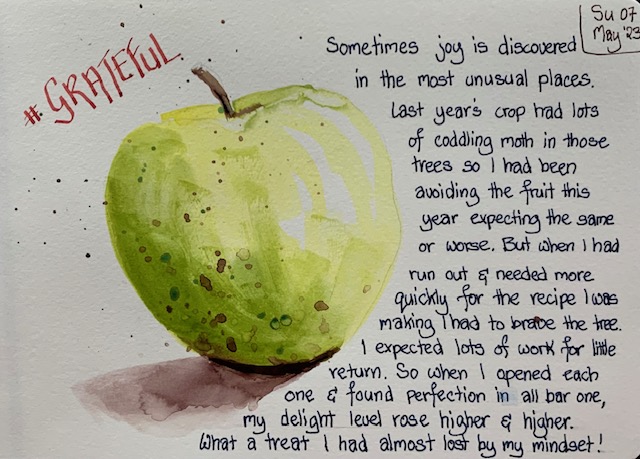 Su 07
May '23
#GRATEFUL
Sometimes joy is discovered
in the most unusual places.
Last year's crop had lots
of coddling moth in those
trees so I had been
avoiding the fruit this
year expecting the same
or worse. But when I had
run out & needed more
quickly for the recipe I was
making I had to brave the tree.
I expected lots of work for little
return. So when I opened each
one & found perfection in all bar one,
my delight level rose higher & higher.
What a treat I had almost lost by my mindset!